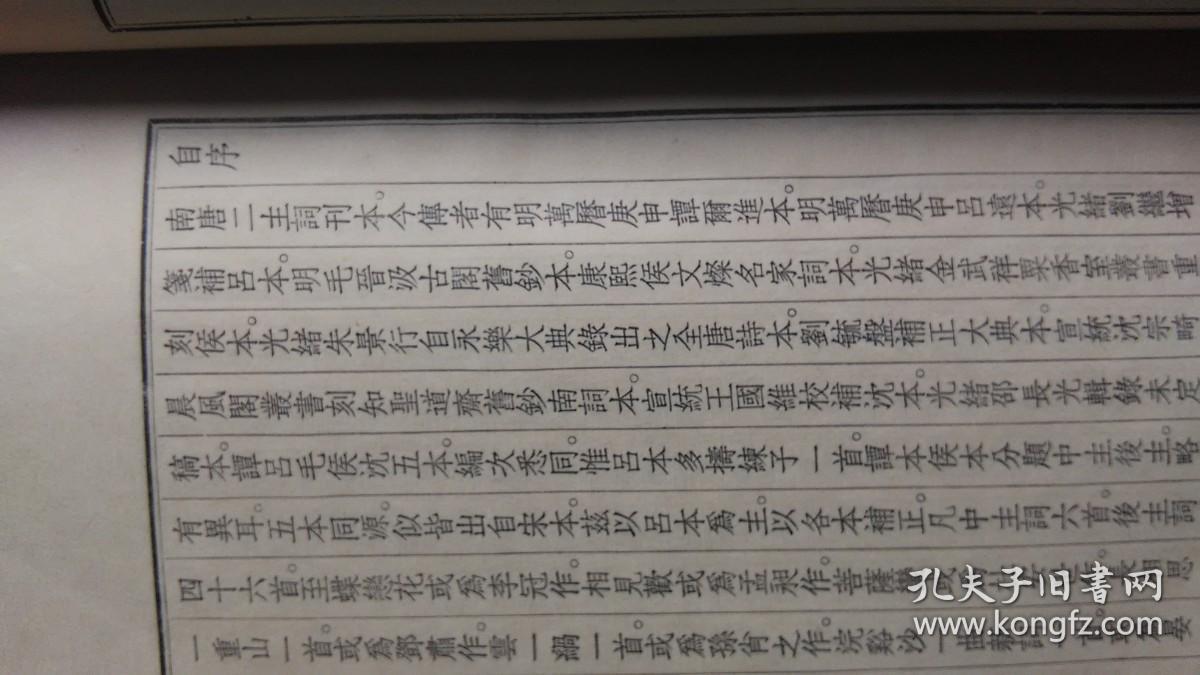 自序
南唐二主詞刊本。今傳者有明萬曆庚申譚爾進本。明萬曆庚申呂遠本。光緒劉繼增
箋補呂本。明毛晉汲古閣舊鈔本。康熙侯文燦名家詞本。光緒金武祥粟香室叢書重
刻侯本。光緒朱景行自永樂大典錄出之全唐詩本。劉毓盤補正大典本。宣統沈宗畸
晨風閣叢書刻知聖道齋舊鈔南詞本。宣統王國維校補沈本。光緒邵長光輯錄未定
稿本。譚呂毛侯沈五本。編次悉同。惟呂本多擣練子一首。譚本侯本分題中主後主。略
有異耳。五本同源。似皆出自宋本。茲以呂本爲主。以各本補正。凡中主詞六首。後主詞
四十六首。至蝶戀花或爲李冠作。相見歡或爲孟昶作。菩薩
一重山一首。或爲鄧肅作。雲一緺一首。或爲孫肖之作。浣谿沙一曲
孔夫子旧书网
www.kongfz.com